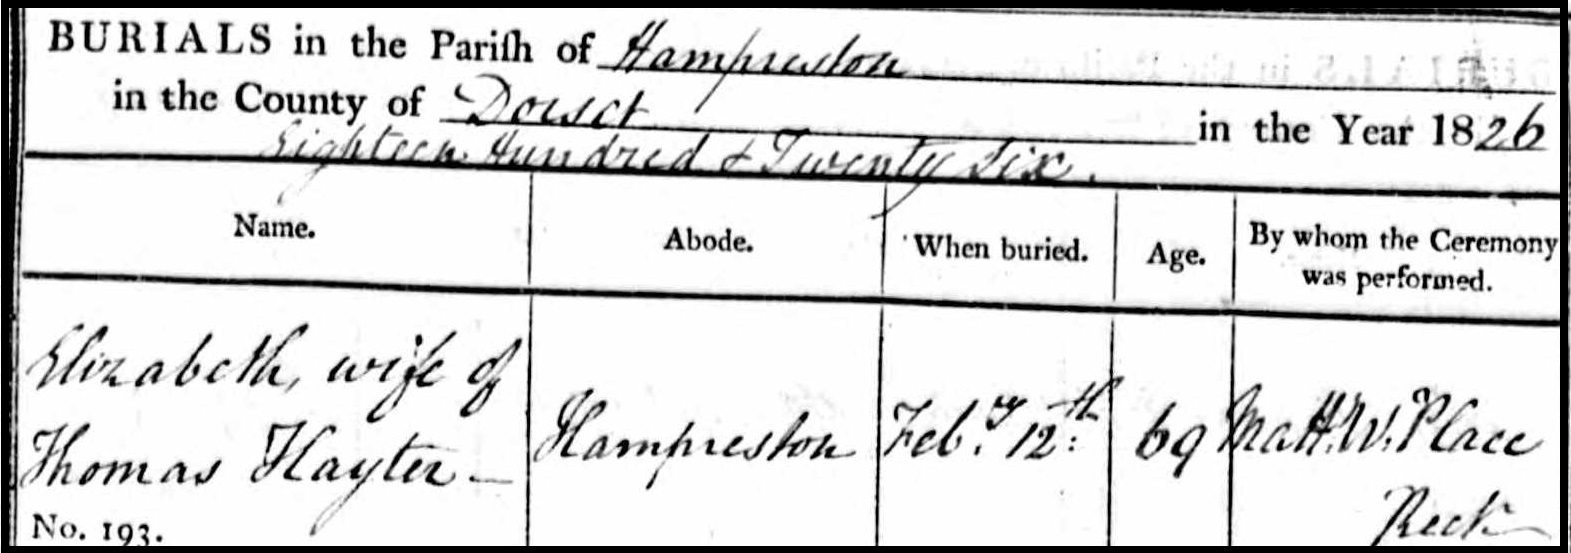 BURIALS in the Pariſh of Hampreston
in the County of Dorset in the Year 1826
Eighteen Hundred & Twenty Six.
Name. Abode. When buried. Age. By whom the Ceremony was performed.
Elizabeth, wife of
Thomas Hayter Hampreston Feb.y 12th 69 Matt. W. Place
Rect
No. 193.